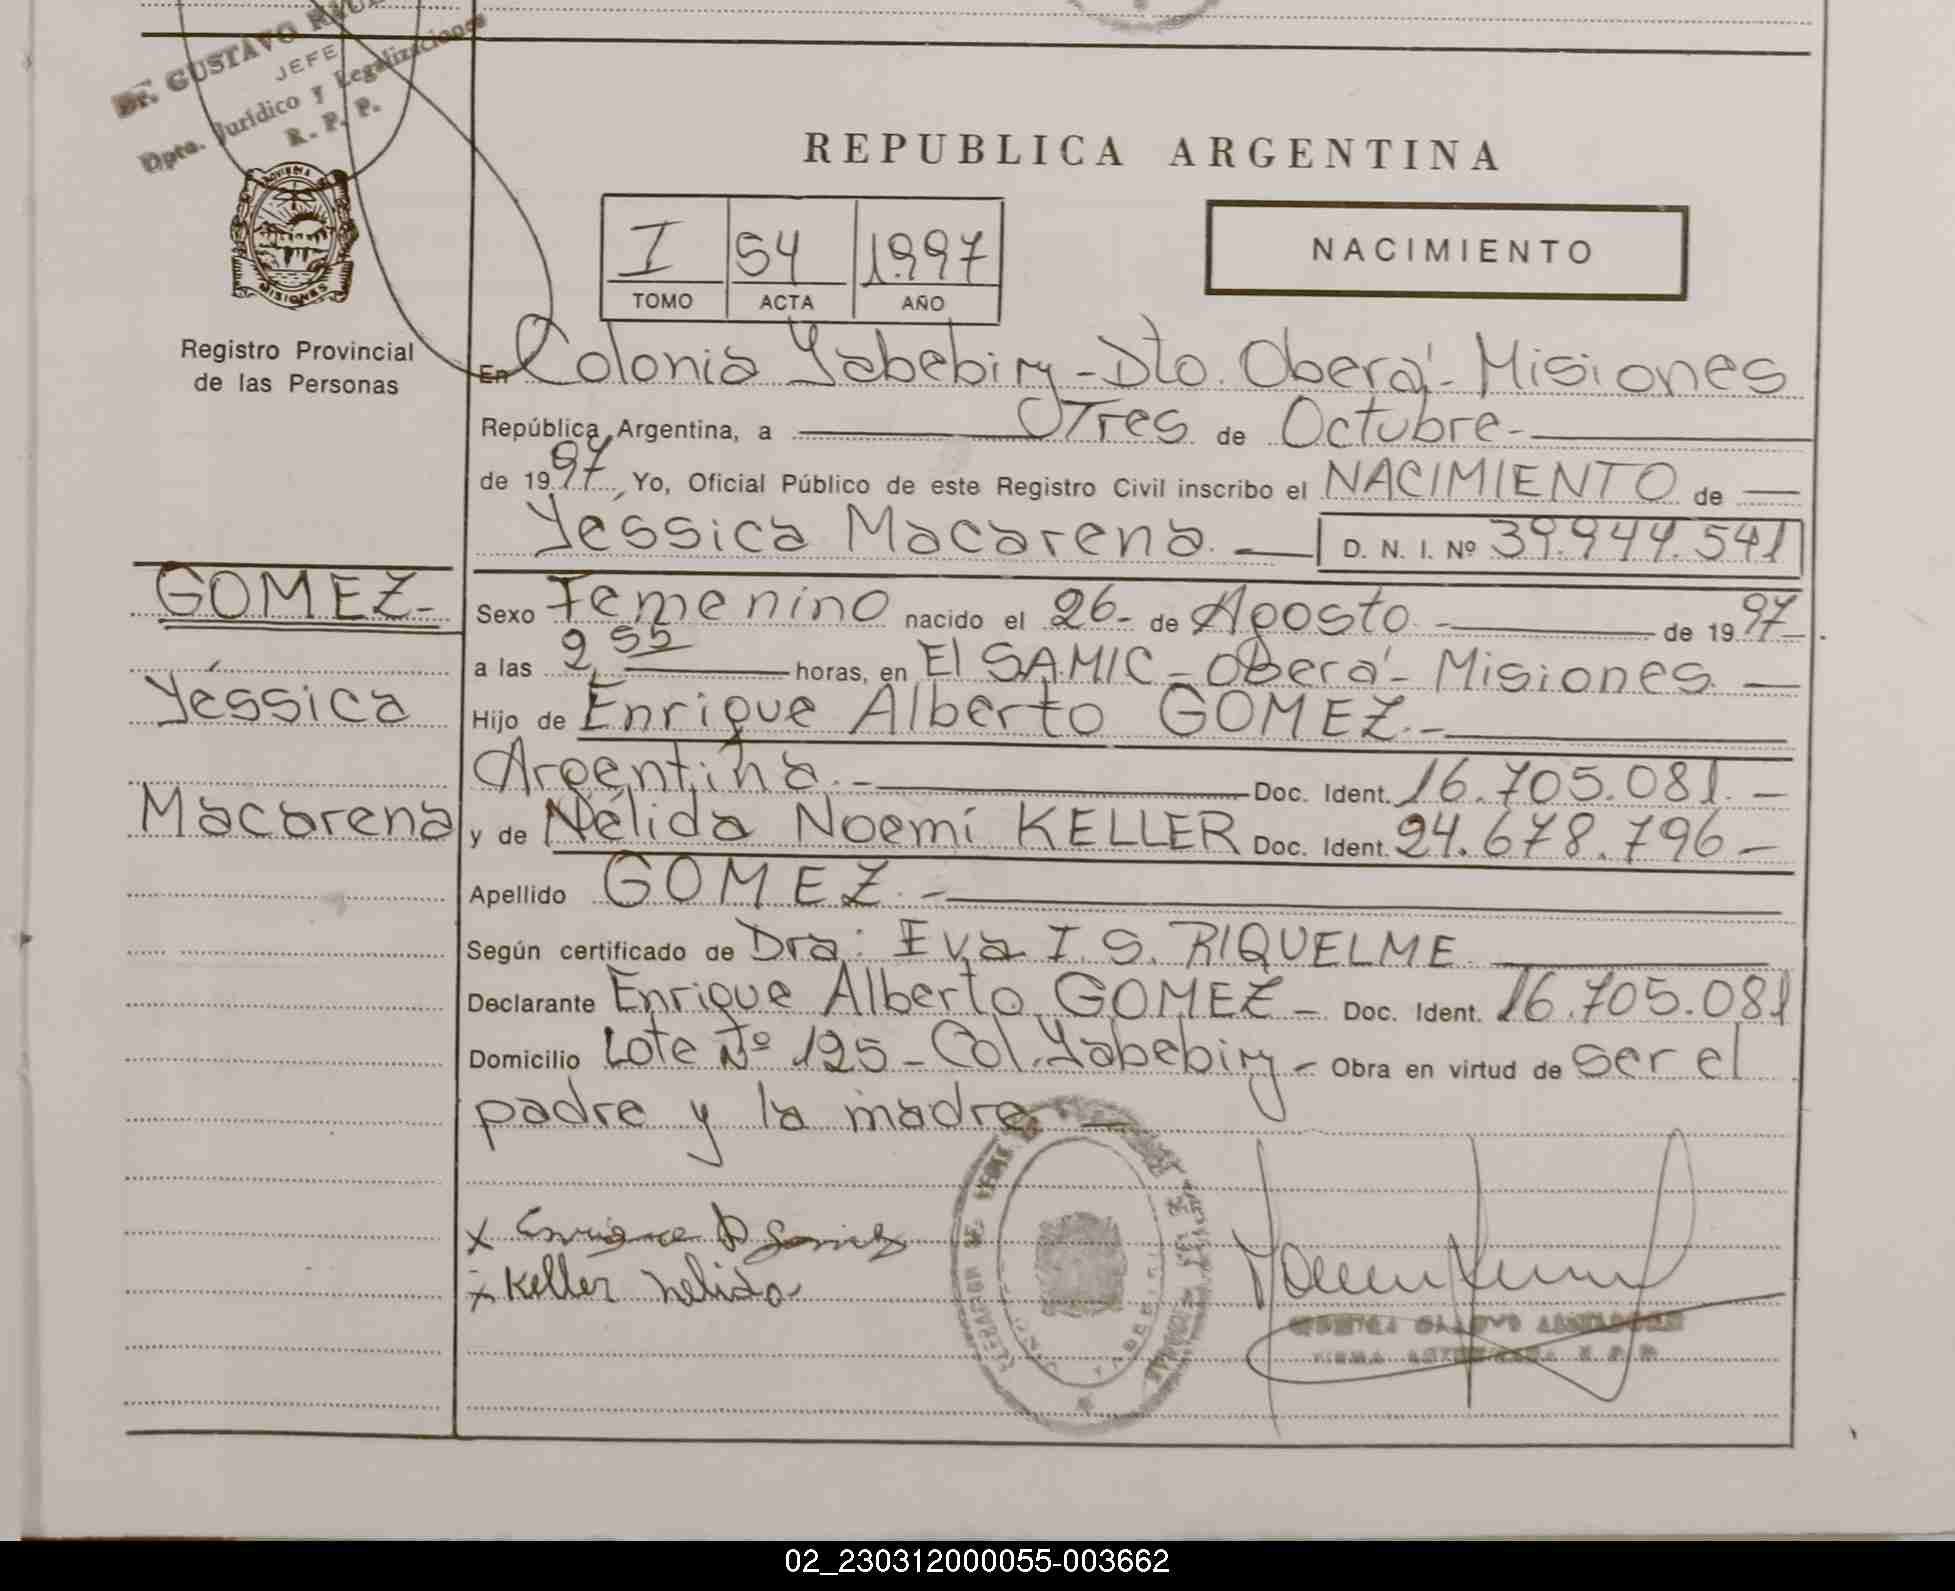 Dr. GUSTAVO
JEFE
Dpto. Jurídico y Legalizaciones
R. P. P.
PROVINCIA
MISIONES
Registro Provincial
de las Personas
REPUBLICA ARGENTINA
I 54 1997
TOMO ACTA AÑO
NACIMIENTO
En Colonia Yabebiry - Dto. Oberá - Misiones
República Argentina, a Tres de Octubre -
de 1997, Yo, Oficial Público de este Registro Civil inscribo el NACIMIENTO de
Yéssica Macarena. D. N. I. Nº 39.944.541
GOMEZ-
Yéssica
Macarena
Sexo Femenino nacido el 26- de Agosto - de 1997
a las 2,55 horas, en El SAMIC - Oberá - Misiones
Hijo de Enrique Alberto GOMEZ.-
Argentina.- Doc. Ident. 16.705.081.-
y de Nélida Noemí KELLER Doc. Ident. 24.678.796-
Apellido GOMEZ.-
Según certificado de Dra: Eva I. S. RIQUELME
Declarante Enrique Alberto GOMEZ - Doc. Ident. 16.705.081
Domicilio Lote Nº 125 - Col. Yabebiry - Obra en virtud de ser el
padre y la madre. -
x Enrique A Gomez
x Keller Nelida
02_230312000055-003662